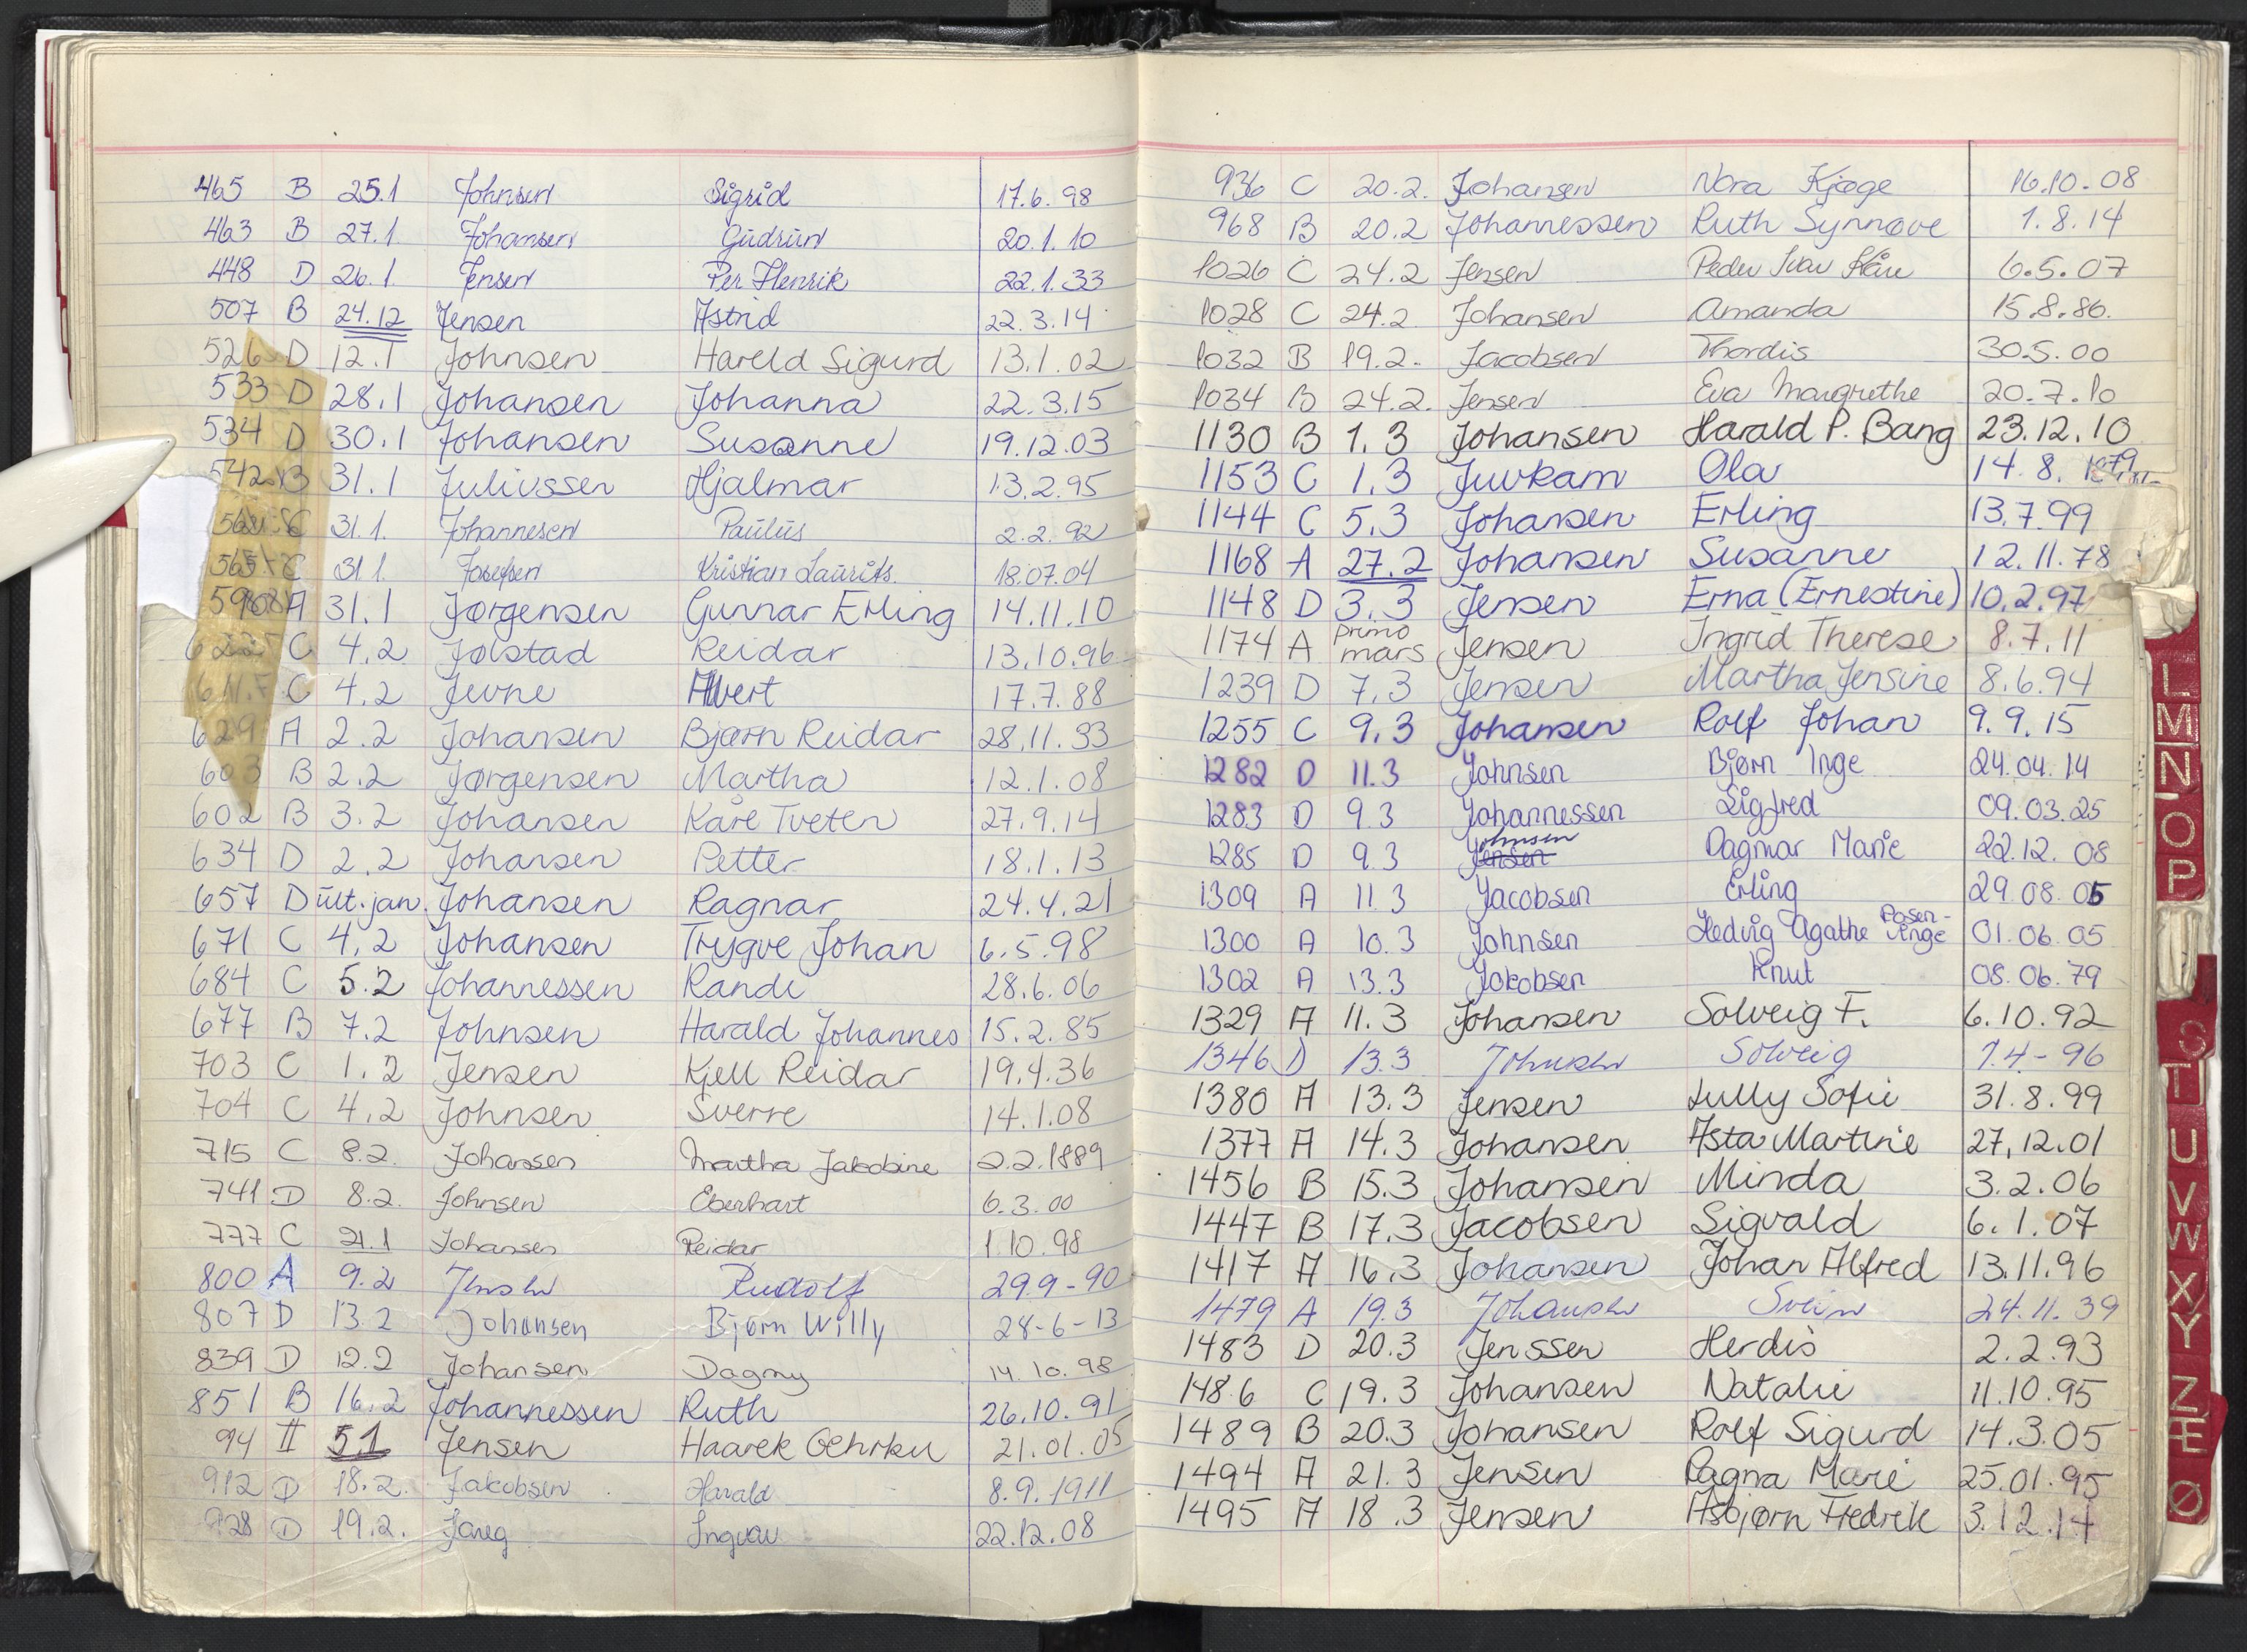 465 B 25.1 Johnsen Sigrid 17.6.98
463 B 27.1. Johansen Gudrun 20.1.10
448 D 26.1. Jensen Per Henrik 22.1.33
507 B 24.12 Jensen Astrid 22.3.14
526 D 12.1 Johnsen Harald Sigurd 13.1.02
533 D 28.1 Johansen Johanna 22.3.15
534 D 30.1 Johansen Susanne 19.12.03
542 B 31.1 Juliussen Hjalmar 13.2.95
568 C 31.1. Johannesen Paulus 2.2.92
565 C 31.1. Josefsen Kristian Laurits. 18.07.04
598 A 31.1 Jørgensen Gunnar Erling 14.11.10
622 C 4.2 Jølstad Reidar 13.10.96
C 4.2 Jevne Albert 17.7.88
629 A 2.2 Johansen Bjørn Reidar 28.11.33
603 B 2.2 Jørgensen Martha 12.1.08
602 B 3.2 Johansen Kåre Tveten 27.9.14
634 D 2.2 Johansen Petter 18.1.13
657 D ult. jan. Johansen Ragnar 24.4.21
671 C 4.2 Johansen Trygve Johan 6.5.98
684 C 5.2 Johannessen Randi 28.6.06
677 B 7.2 Johnsen Harald Johannes 15.2.85
703 C 1.2 Jensen Kjell Reidar 19.4.36
704 C 4.2 Johnsen Sverre 14.1.08
715 C 8.2. Johansen Martha Jakobine 2.2.1889
741 D 8.2. Johnsen Eberhart 6.3.00
777 C 21.1 Johansen Reidar 1.10.98
800 A 9.2 Rudolf 29.9-90
807 D 13.2 Johansen Bjørn Willy 28-6-13
839 D 12.2 Johansen Dagny 14.10.98
851 B 16.2 Johannessen Ruth 26.10.91
94 II 5.1 Jensen Haarek 21.01.05
912 D 18.2. Jakobsen Harald 8.9.1911
928 D 19.2. Jareg Ingvar 22.12.08
936 C 20.2. Johansen Nora Kjøge 16.10-08
968 B 20.2 Johannessen Ruth Synnøve 1.8.14
1026 C 24.2 Jensen Peder Ivar Kåre 6.5.07
1028 C 24.2 Johansen Amanda 15.8.86.
1032 B 19.2. Jacobsen Thordis 30.5.00
1034 B 24.2. Jensen Eva Margrethe 20.7.10
1130 B 1.3 Johansen Harald P. Bang 23.12.10
1153 C 1.3 Juvkam Ola 14.8.1879
1144 C 5.3 Johansen Erling 13.7.99
1168 A 27.2 Johansen Susanne 12.11.78
1148 D 3.3 Jensen Erna (Ernestine) 10.2.97
1174 A primo mars Jensen Ingrid Therese 8.7.11
1239 D 7.3 Jensen Martha Jensine 8.6.94
1255 C 9.3 Johansen Rolf Johan 9.9.15
1282 D 11.3 Johnsen Bjørn Inge 24.04.14
1283 D 9.3 Johannessen Sigfred 09.03.25
1285 D 9.3 Jensen Johnsen Dagmar Marie 22.12.08
1309 A 11.3 Jacobsen Erling 29.08.05
1300 A 10.3 Johnsen Hedvig Agathe Rosenvinge 01.06.05
1302 A 13.3 Jakobsen Knut 08.06.79
1329 A 11.3 Johansen Solveig F. 6.10.92
1346 D 13.3 Johnsen Solveig 7.4-96
1380 A 13.3 Jensen Lully Sofie 31.8.99
1377 A 14.3 Johansen Asta Martine 27.12.01
1456 B 15.3 Johansen Minda 3.2.06
1447 B 17.3 Jacobsen Sigvald 6.1.07
1417 A 16.3 Johansen Johan Alfred 13.11.96
1479 A 19.3 Johansen Svein 24.11.39
1483 D 20.3 Jenssen Herdis 2.2.93
1486 C 19.3 Johansen Natalie 11.10.95
1489 B 20.3 Johansen Rolf Sigurd 14.3.05
1494 A 21.3 Jensen Ragna Marie 25.01.95
1495 A 18.3 Jensen Asbjørn Fredrik 3.12.14
L
M
N
O
P
S
T
U
V
W
X
Y
Z
Æ
Ø